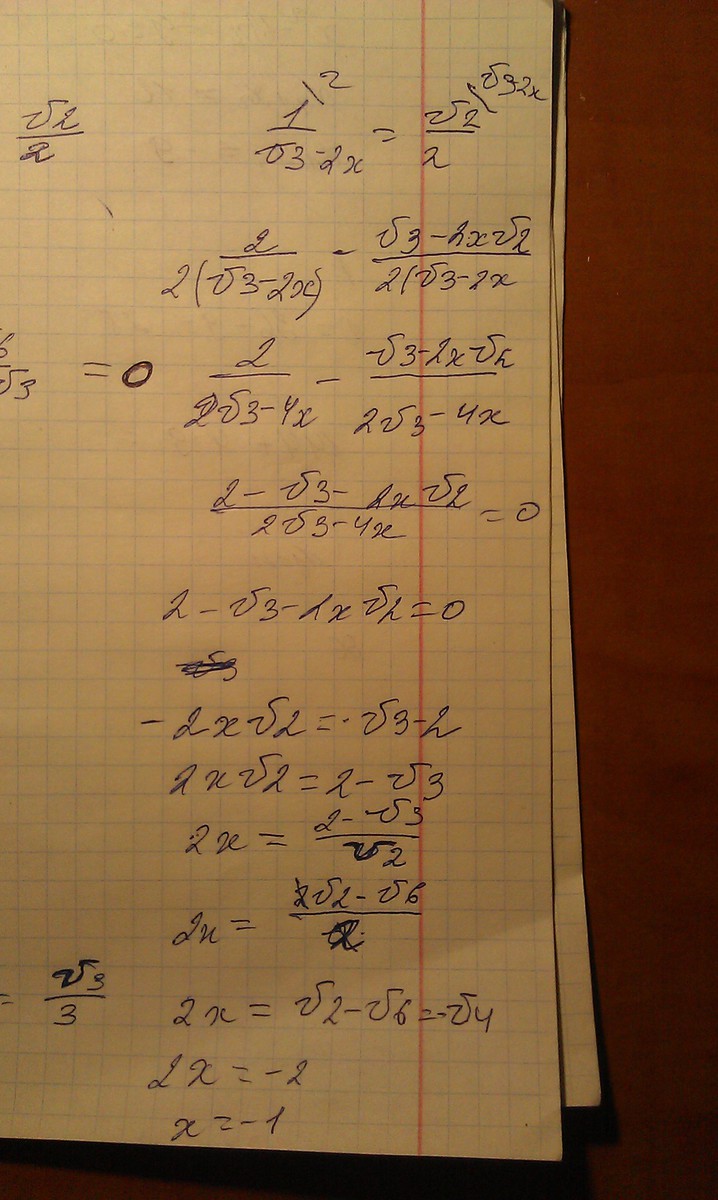 √2/2
1\2/(√3-2x) = √2\√3-2x/2
2/(2(√3-2x)) - (√3-2x√2)/(2(√3-2x
√3 = 0
2/(2√3-4x) - (√3-2x√2)/(2√3-4x)
(2-√3-2x√2)/(2√3-4x) = 0
2-√3-2x√2=0
-2x√2=√3-2
2x√2=2-√3
2x = (2-√3)/√2
2x = (2√2-√6)/2
= √3/3
2x = √2-√6=-√4
2x=-2
x=-1